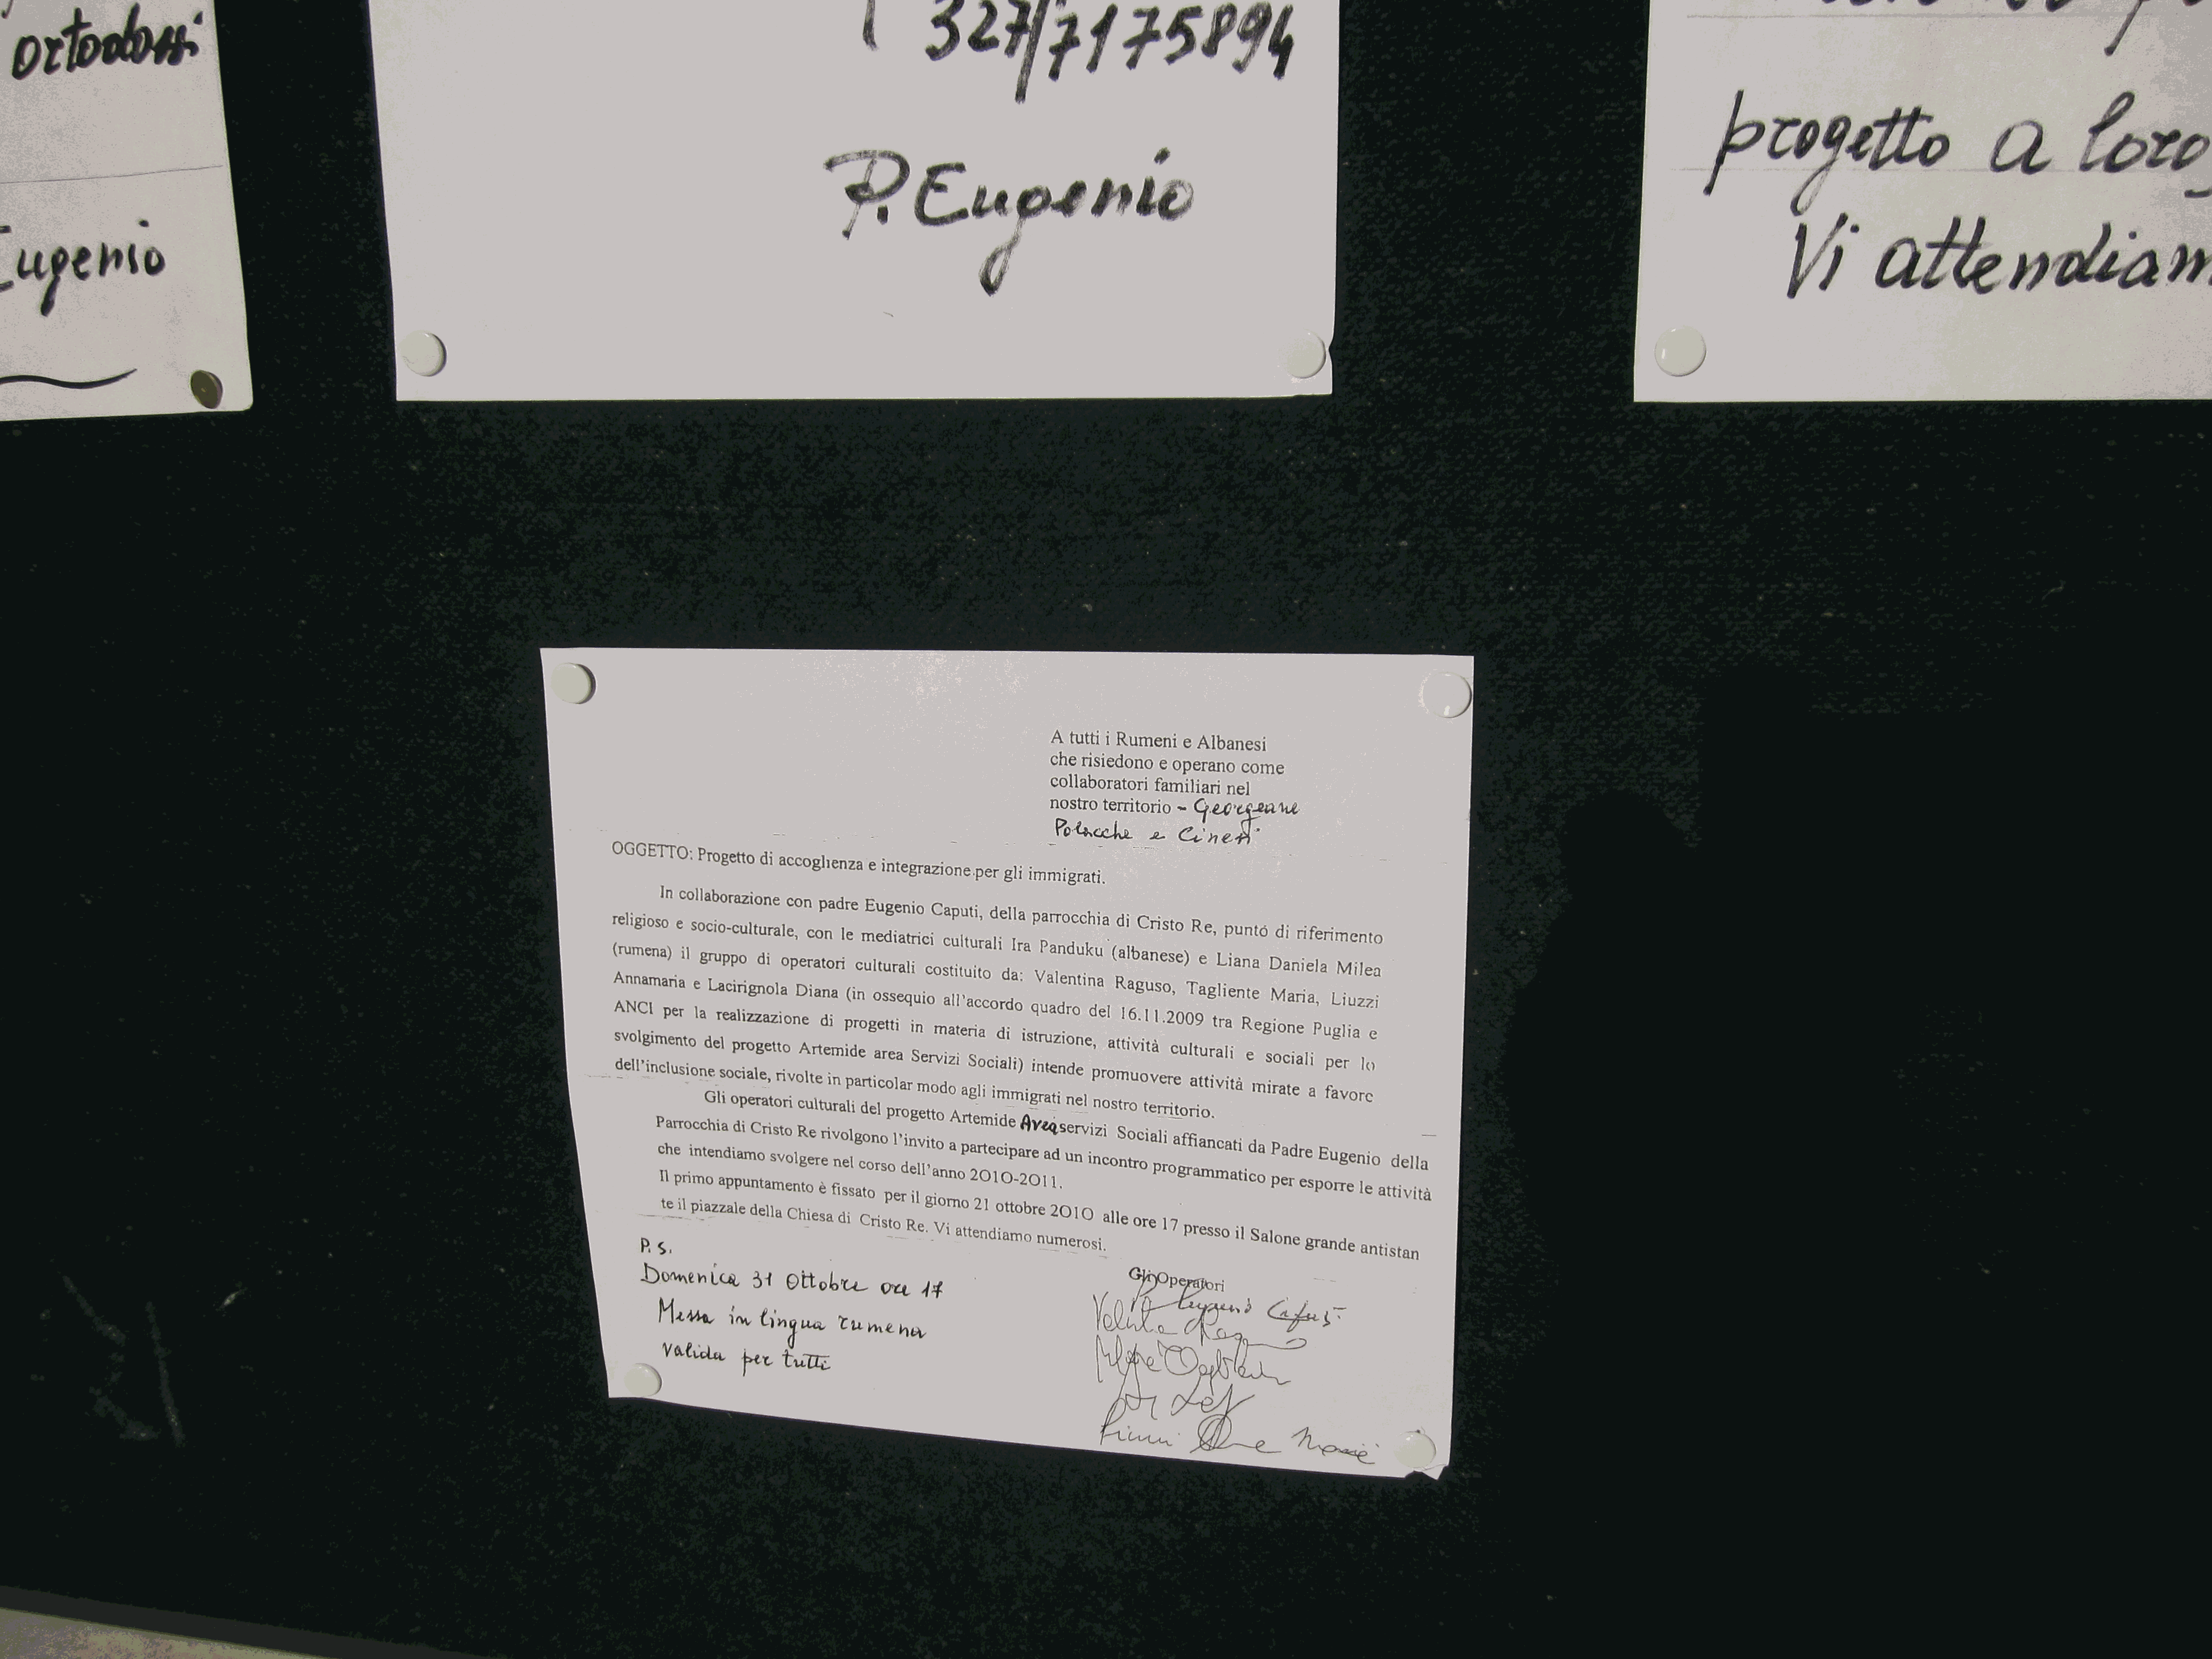 ortodossi
Eugenio
327/7175894
P. Eugenio
progetto a loro
Vi attendiam
A tutti i Rumeni e Albanesi
che risiedono e operano come
collaboratori familiari nel
nostro territorio - Georgeane
Polacche e Cinesi
OGGETTO: Progetto di accoglienza e integrazione per gli immigrati.
In collaborazione con padre Eugenio Caputi, della parrocchia di Cristo Re, punto di riferimento
religioso e socio-culturale, con le mediatrici culturali Ira Panduku (albanese) e Liana Daniela Milea
(rumena) il gruppo di operatori culturali costituito da: Valentina Raguso, Tagliente Maria, Liuzzi
Annamaria e Lacirignola Diana (in ossequio all'accordo quadro del 16.11.2009 tra Regione Puglia e
ANCI per la realizzazione di progetti in materia di istruzione, attività culturali e sociali per lo
svolgimento del progetto Artemide area Servizi Sociali) intende promuovere attività mirate a favore
dell'inclusione sociale, rivolte in particolar modo agli immigrati nel nostro territorio.
Gli operatori culturali del progetto Artemide Area servizi Sociali affiancati da Padre Eugenio della
Parrocchia di Cristo Re rivolgono l'invito a partecipare ad un incontro programmatico per esporre le attività
che intendiamo svolgere nel corso dell'anno 2010-2011.
Il primo appuntamento è fissato per il giorno 21 ottobre 2010 alle ore 17 presso il Salone grande antistan
te il piazzale della Chiesa di Cristo Re. Vi attendiamo numerosi.
P.S.
Domenica 31 Ottobre ore 17
Messa in lingua rumena
valida per tutti
Gli Operatori